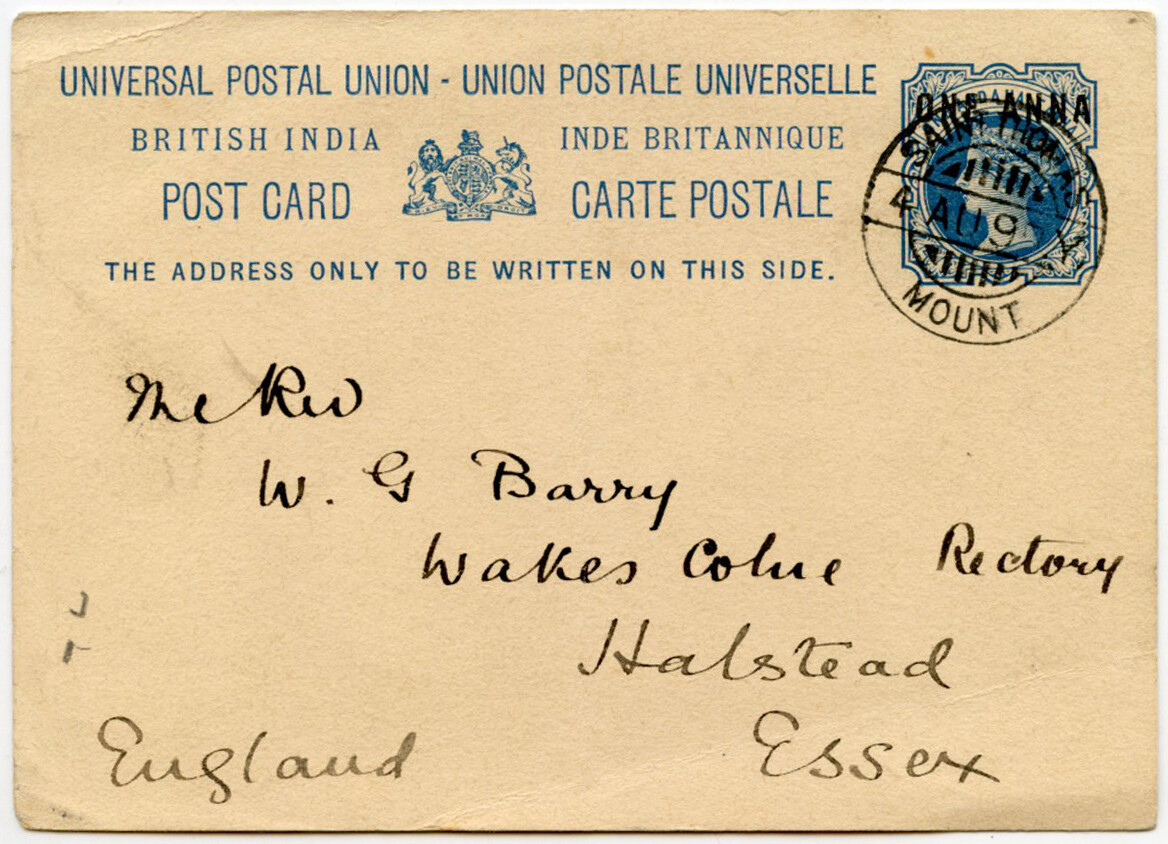 UNIVERSAL POSTAL UNION - UNION POSTALE UNIVERSELLE
BRITISH INDIA INDE BRITANNIQUE
POST CARD CARTE POSTALE
THE ADDRESS ONLY TO BE WRITTEN ON THIS SIDE.
ONE ANNA
SAINT
4 AU 9
MOUNT
The Rev
W. G Barry
Wakes Colne Rectory
Halstead
England Essex